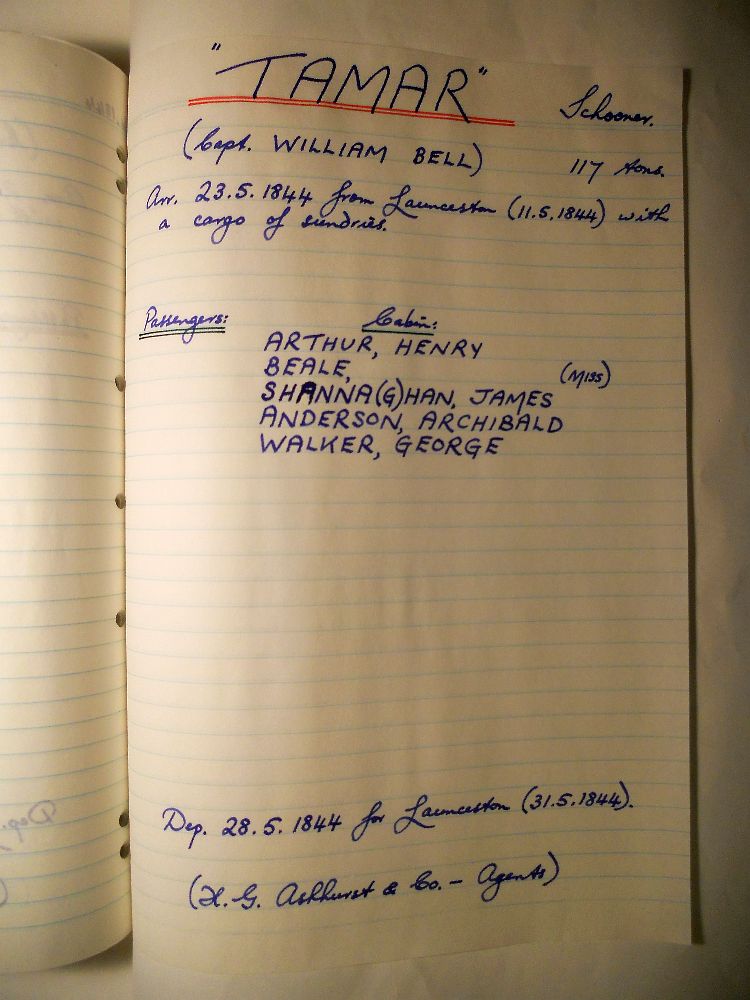 "TAMAR"
Schooner.
(Capt. WILLIAM BELL)
117 tons.
Arr. 23.5.1844 from Launceston (11.5.1844) with
a cargo of sundries.
Passengers:
Cabin:
ARTHUR, HENRY
BEALE, (MISS)
SHANNA(G)HAN, JAMES
ANDERSON, ARCHIBALD
WALKER, GEORGE
Dep. 28.5.1844 for Launceston (31.5.1844).
(H. G. Ashhurst & Co. – Agents)